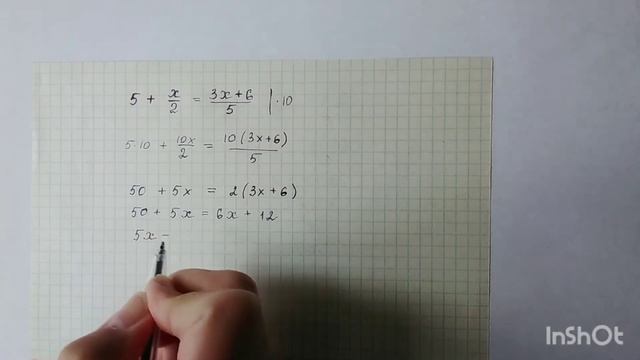 5 + x/2 = (3x+6)/5 |·10
5·10 + 10x/2 = 10(3x+6)/5
50 + 5x = 2(3x+6)
50 + 5x = 6x + 12
5x -
InShOt